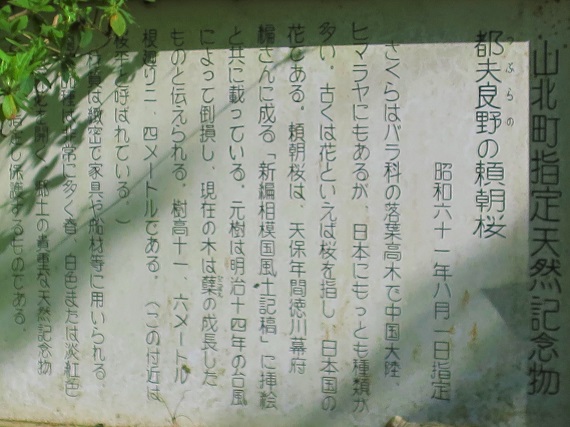 山北町指定天然記念物
都夫良野の頼朝桜
つぶらの
昭和六十一年八月一日指定
さくらはバラ科の落葉高木で中国大陸、
ヒマラヤにもあるが、日本にもっとも種類が
多い。古くは花といえば桜を指し、日本国の
花である。頼朝桜は、天保年間徳川幕府
編さんに成る「新編相模国風土記稿」に挿絵
と共に載っている。元樹は明治十四年の台風
によって倒損し、現在の木は蘖の成長した
ものと伝えられる。樹高十一、六メートル
根廻り二、四メートルである。（この付近は
桜平と呼ばれている。）
は緻密で家具や船材等に用いられる。
種は非常に多く春、白色または淡紅色
を開く。郷土の貴重な天然記念物
し保護するものである。